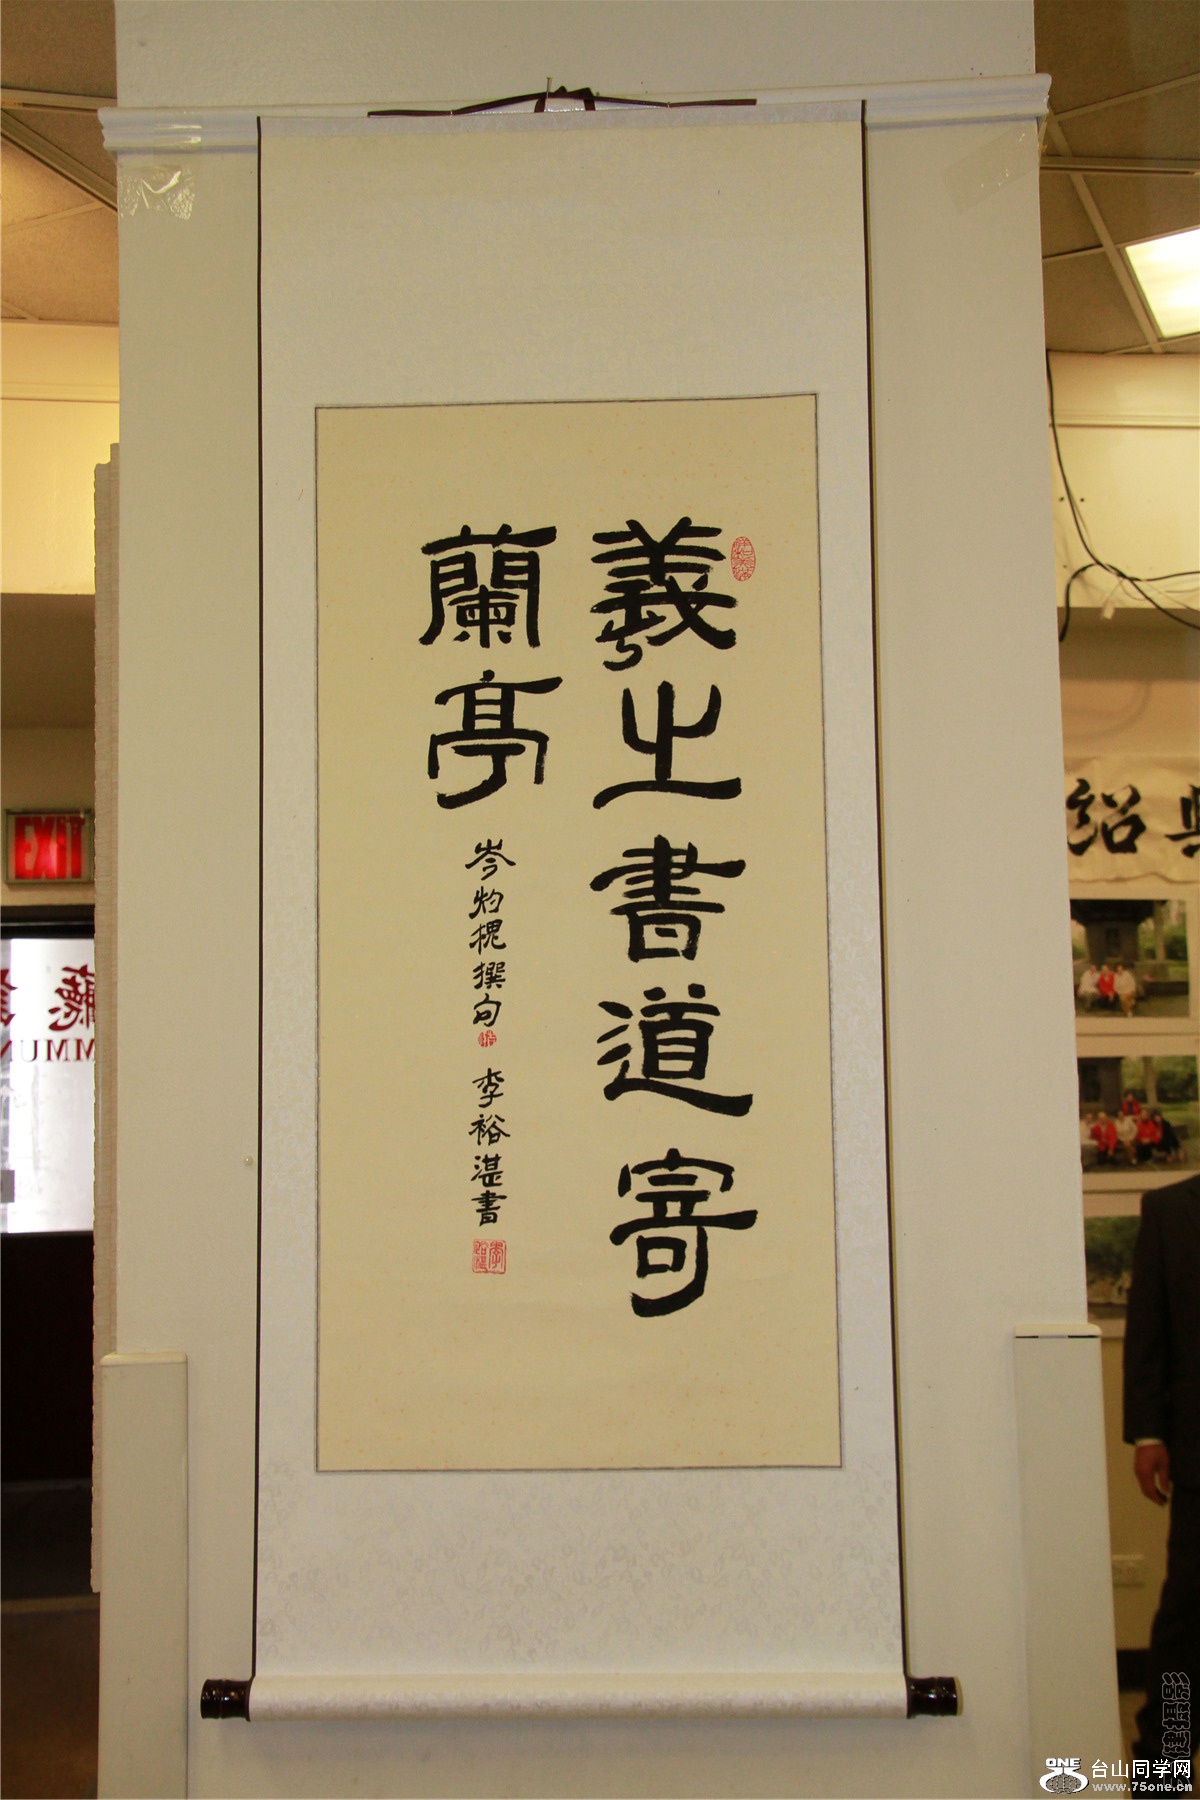 羲之書道寄
蘭亭
岑灼槐撰句
李裕湛書
EXIT
廳
MMUN
紹興
ONE
台山同学网
www.75one.cn